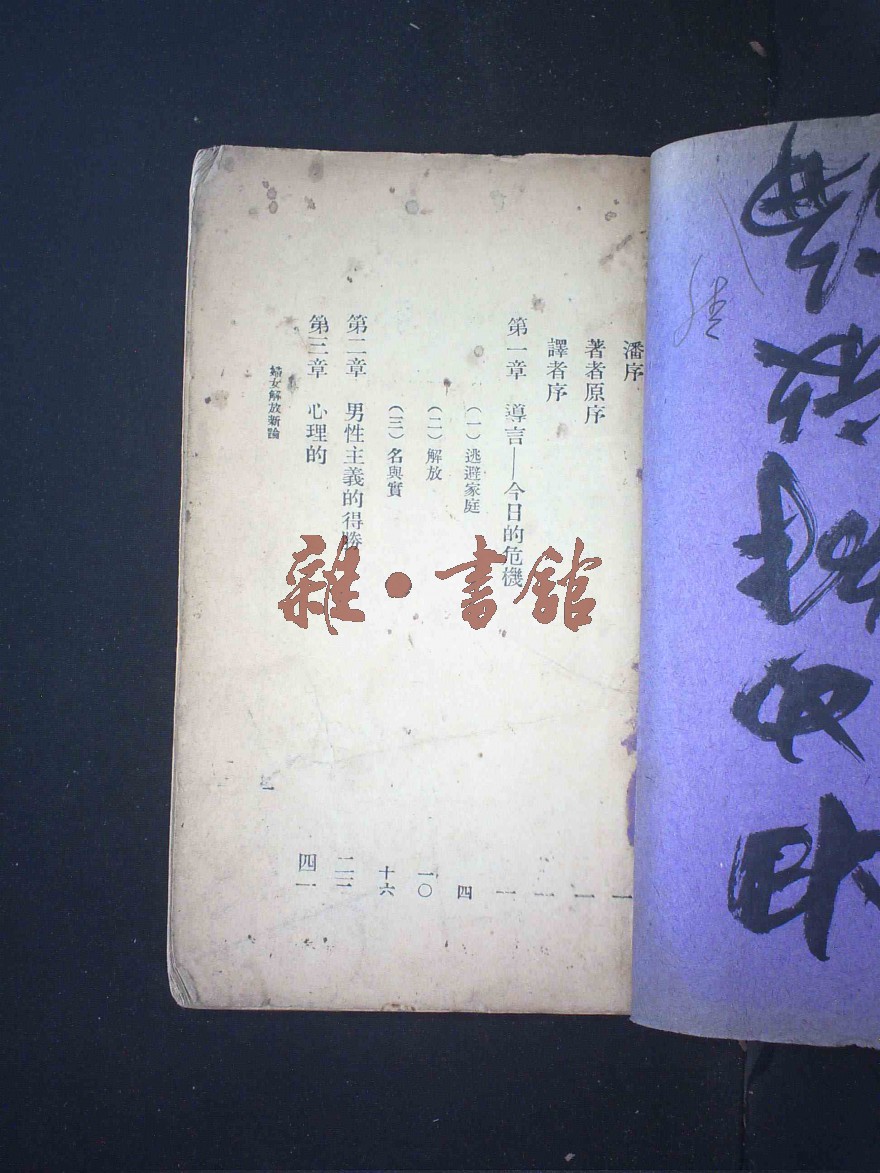 潘序 一
著者原序 一
譯者序 一
第一章 導言—今日的危機 一
（一）逃避家庭 四
（二）解放 一〇
（三）名與實 十六
第二章 男性主義的得勝 二二
第三章 心理的 四一
婦女解放新論 一
雜·書館